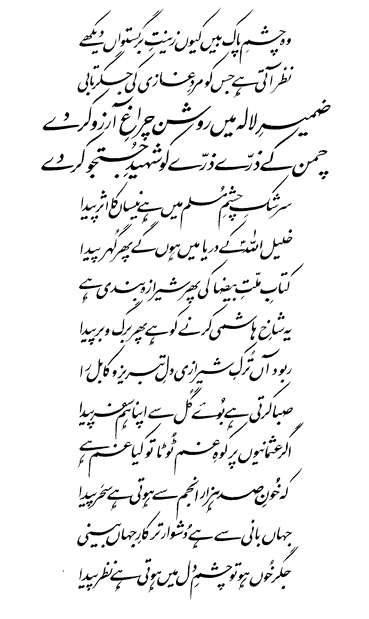 وہ چشمِ پاک بیں کیوں زینتِ برگستواں دیکھے
نظر آتی ہے جس کو مردِ غازی کی جگر تابی
ضمیرِ لالہ میں روشن چراغِ آرزو کر دے
چمن کے ذرّے ذرّے کو شہیدِ جستجو کر دے
سرشکِ چشمِ مسلم میں ہے نیساں کا اثر پیدا
خلیل اللہؑ کے دریا میں ہوں گے پھر گُہر پیدا
کتابِ ملّتِ بیضا کی پھر شیرازہ بندی ہے
یہ شاخِ ہاشمی کرنے کو ہے پھر برگ و بر پیدا
ربود آں تُرکِ شیرازی دلِ تبریز و کابل را
صبا کرتی ہے بُوئے گُل سے اپنا ہم سفر پیدا
اگر عثمانیوں پر کوہِ غم ٹُوٹا تو کیا غم ہے
کہ خُونِ صد ہزار انجم سے ہوتی ہے سحر پیدا
جہاں بانی سے ہے دُشوار تر کارِ جہاں بینی
جگر خُوں ہو تو چشمِ دل میں ہوتی ہے نظر پیدا